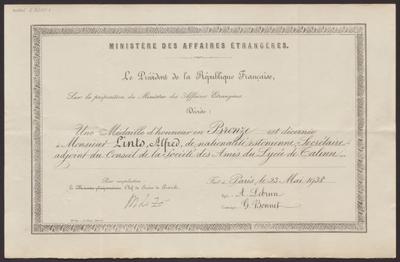 MINISTÈRE DES AFFAIRES ÉTRANGÈRES.
Le Président de la République Française,
Sur la proposition du Ministre des Affaires Etrangères
Décrète :
Une Médaille d'honneur en Bronze est décernée
à Monsieur Lints, Alfred, de nationalité estonienne, Secrétaire
adjoint du Conseil de la Société des Amis du Lycée de Tallinn.
Fait à Paris, le 23 Mai 1938
Pour ampliation :
Le Ministre plénipotentiaire, Chef du Service du Protocole,
Signé : A. Lebrun
Contresigné : G. Bonnet